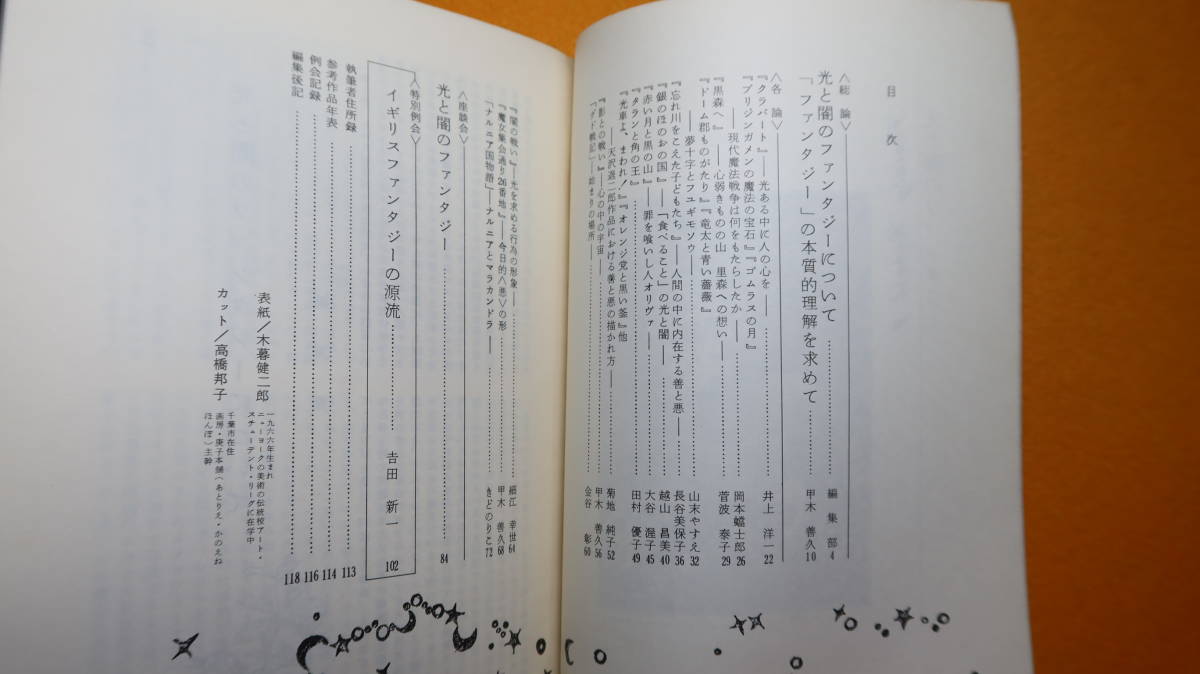 目次
〈総論〉
光と闇のファンタジーについて……編集部 4
「ファンタジー」の本質的理解を求めて……甲木善久 10
〈各論〉
『クラバート』──光ある中に人の心を……井上洋一 22
『ブリジンガメンの魔法の宝石』『ゴムラスの月』
──現代魔法戦争は何をもたらしたか──岡本蟷士郎 26
『黒森へ』──心弱きものの山 里森への想い……菅波泰子 29
『ドーム郡ものがたり』『竜太と青い薔薇』
──夢十字とフユギモソウ……山末やすえ 32
『忘れ川をこえた子どもたち』──人間の中に内在する善と悪──長谷美保子 36
『銀のほのおの国』──「食べること」の光と闇……越山昌美 40
『赤い月と黒の山』──罪を喰いし人オリヴァ──大谷澄子 45
『タランと角の王』……田村優子 49
『光車よ、まわれ!』『オレンジ党と黒い釜』他
──天沢退二郎作品における善と悪の描かれ方──菊地純子 52
『影との戦い』──心の中の宇宙……甲木善久 56
「ゲド戦記」──始まりの場所……金谷彰 60
『闇の戦い』──光を求める行為の形象……細江幸世 64
『魔女集会通り26番地』──今日的〈悪〉の形……甲木善久 68
「ナルニア国物語」──ナルニアとマラカンドラ──きどのりこ 72
〈座談会〉
光と闇のファンタジー……84
〈特別例会〉
イギリスファンタジーの源流……吉田新一 102
執筆者住所録……113
参考作品年表……114
例会記録……116
編集後記……118
表紙/木暮健二郎
一九六六年生まれ
ニューヨークの美術の伝統校アート・
スチューデント・リーグに在学中
カット/高橋邦子
千葉市在住
画房・庚子本舗(あとりえ・かのえね
ほんぽ)主幹